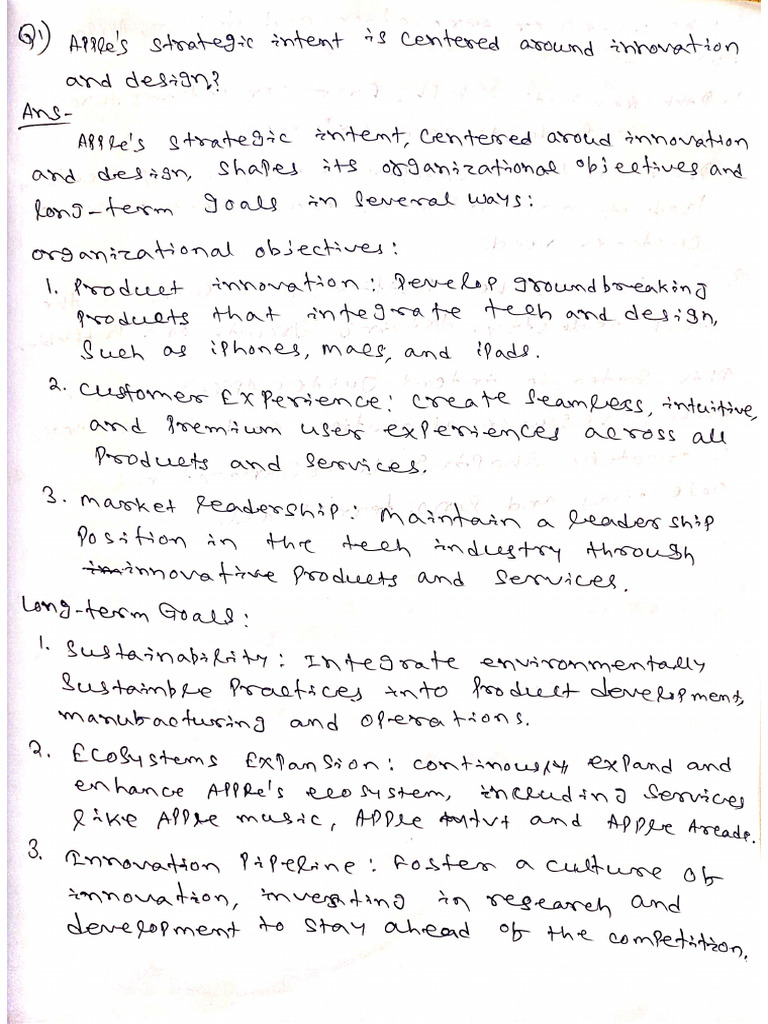 Q1) Apple's strategic intent is centered around innovation
and design?
Ans-
Apple's strategic intent, centered aroud innovation
and design, shapes its organizational objectives and
long-term goals in several ways:
organizational objectives:
1. Product innovation: Develop groundbreaking
products that integrate tech and design,
such as iphones, macs, and ipads.
2. customer Experience: create seamless, intuitive,
and premium user experiences across all
products and services.
3. market leadership: maintain a leadership
position in the tech industry through
innovative products and services.
Long-term Goals:
1. Sustainability: Integrate environmentally
sustaimble practices into product development,
manufacturing and operations.
2. Ecosystems Expansion: continously expand and
enhance Apple's ecosystem, including services
like Apple music, Apple tv+ and Apple Arcade.
3. Innovation Pipeline: Foster a culture of
innovation, investing in research and
development to stay ahead of the competition.